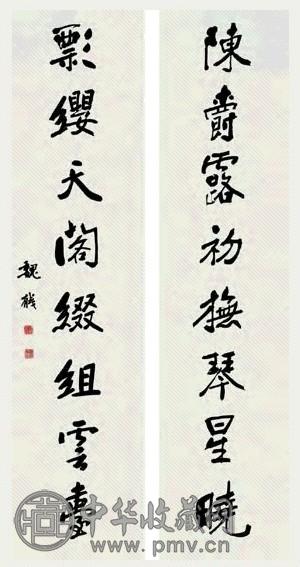 陳爵露初撫琴星曉
彯纓天閣綴組雲臺
魏戫
中华收藏网
www.pmv.cn